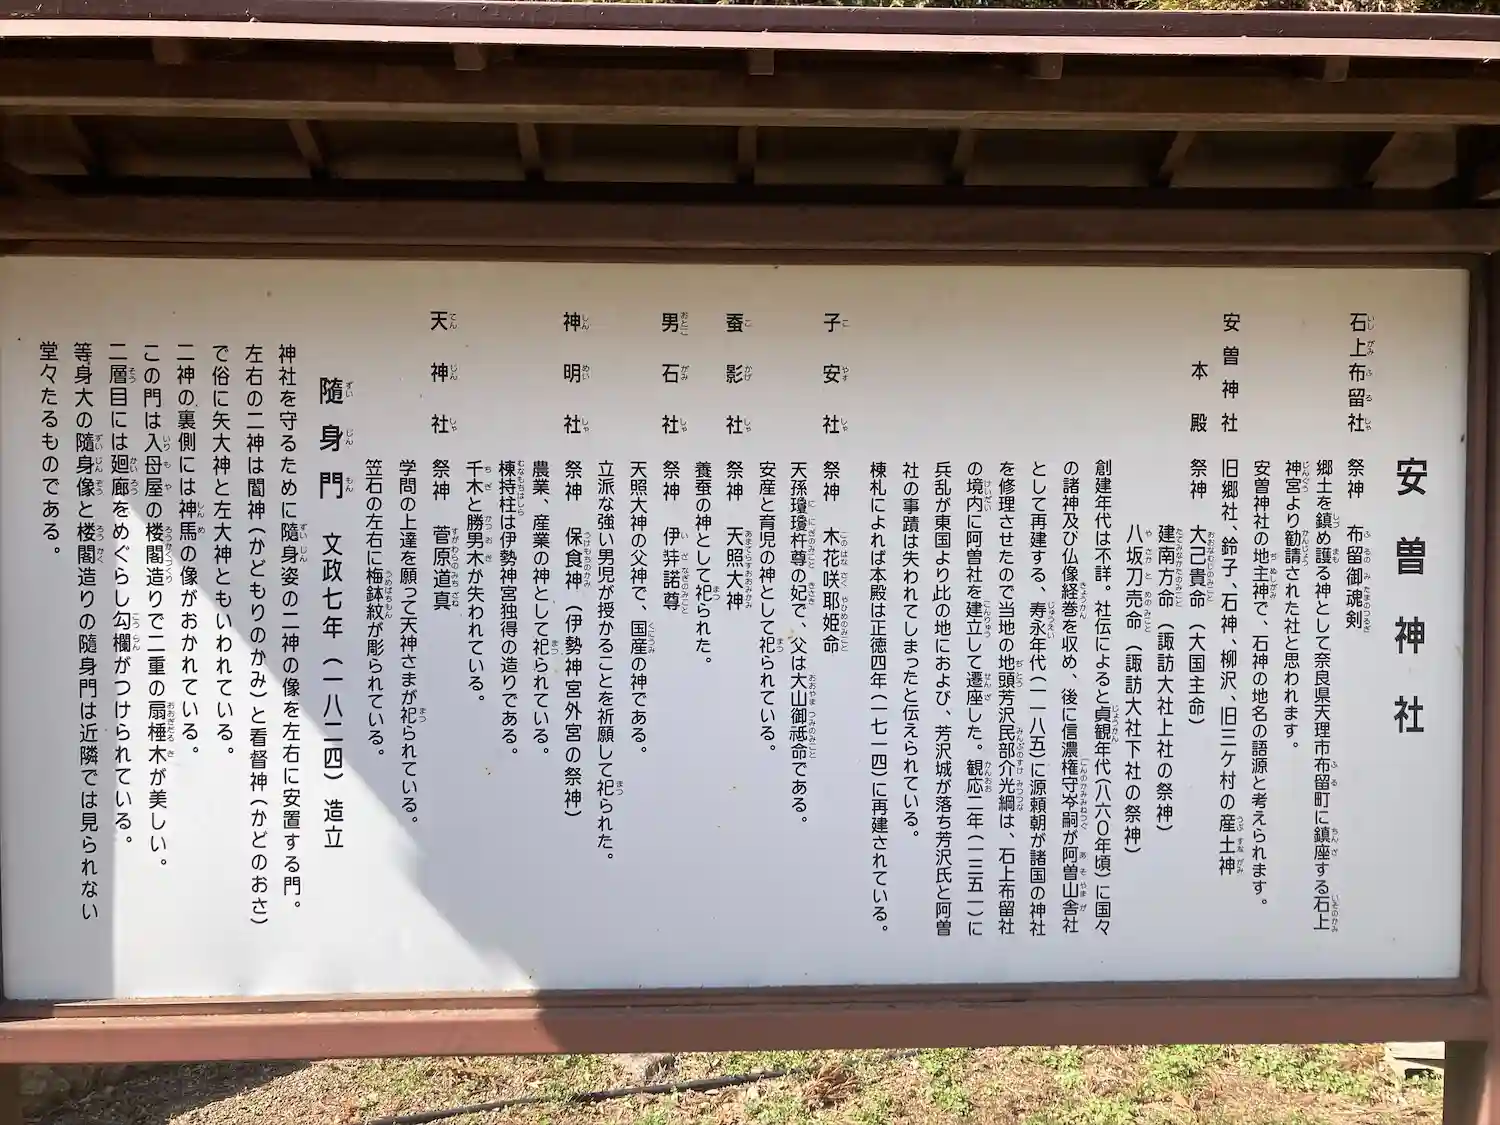 安曽神社
石上布留社 祭神 布留御魂剣
郷土を鎮め護る神として奈良県天理市布留町に鎮座する石上
神宮より勧請された社と思われます。
安曽神社の地主神で、石神の地名の語源と考えられます。
安曽神社 旧郷社、鈴子、石神、柳沢、旧三ケ村の産土神
本殿 祭神 大己貴命(大国主命)
建南方命(諏訪大社上社の祭神)
八坂刀売命(諏訪大社下社の祭神)
創建年代は不詳。社伝によると貞観年代(八六〇年頃)に国々
の諸神及び仏像経巻を収め、後に信濃権守岑嗣が阿曽山舎社
として再建する、寿永年代(一一八五)に源頼朝が諸国の神社
を修理させたので当地の地頭芳沢民部介光綱は、石上布留社
の境内に阿曽社を建立して遷座した。観応二年(一三五一)に
兵乱が東国より比の地におよび、芳沢城が落ち芳沢氏と阿曽
社の事蹟は失われてしまったと伝えられている。
棟札によれば本殿は正徳四年(一七一四)に再建されている。
子安社 祭神 木花咲耶姫命
天孫瓊瓊杵尊の妃で、父は大山御祗命である。
安産と育児の神として祀られている。
蚕影社 祭神 天照大神
養蚕の神として祀られた。
男石社 祭神 伊弉諾尊
天照大神の父神で、国産の神である。
立派な強い男児が授かることを祈願して祀られた。
神明社 祭神 保食神(伊勢神宮外宮の祭神)
農業、産業の神として祀られている。
棟持柱は伊勢神宮独得の造りである。
千木と勝男木が失われている。
天神社 祭神 菅原道真
学問の上達を願って天神さまが祀られている。
笠石の左右に梅鉢紋が彫られている。
隨身門 文政七年(一八二四)造立
神社を守るために隨身姿の二神の像を左右に安置する門。
左右の二神は闇神(かどもりのかみ)と看督神(かどのおさ)
で俗に矢大神と左大神ともいわれている。
二神の裏側には神馬の像がおかれている。
この門は入母屋の楼閣造りで二重の扇棰木が美しい。
二層目には廻廊をめぐらし勾欄がつけられている。
等身大の隨身像と楼閣造りの隨身門は近隣では見られない
堂々たるものである。